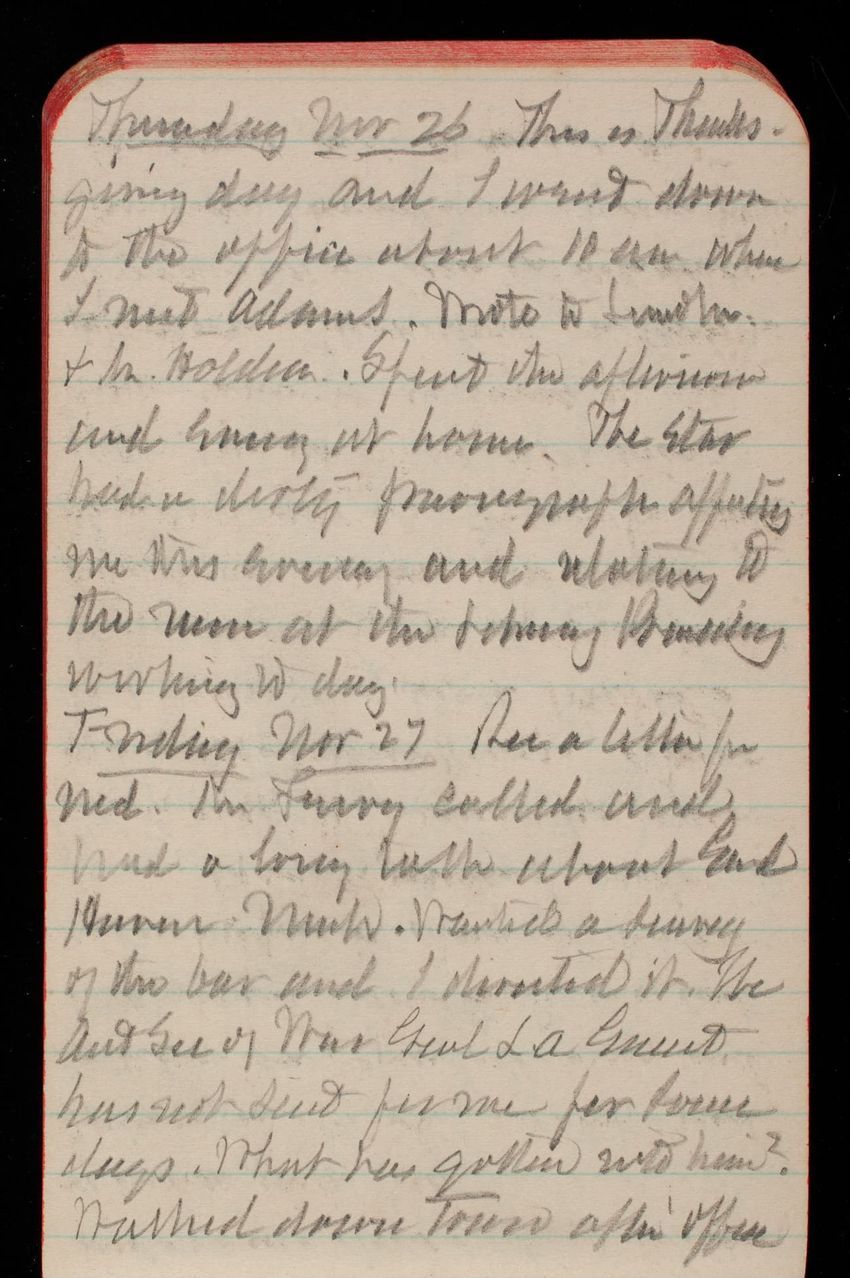 Thursday Nov 26 This is Thanks-
giving day and I went down
to the office about 10 am where
I met Adams. Wrote to
& Mr. Holden. Spent the afternoon
and evening at home. The Star
had a dirty paragraph affecting
me this evening and relating to
the men at the Library Building
working to day.
Friday Nov 27 Rec a letter fr
ned. Mr called and
had a long talk about Gand
Haven Mich. Wanted a survey
of the bar and I directed it. The
Act Sec of War Genl L A Grant
has not sent for me for some
days. What has gotten into him?
Walked down Town after office